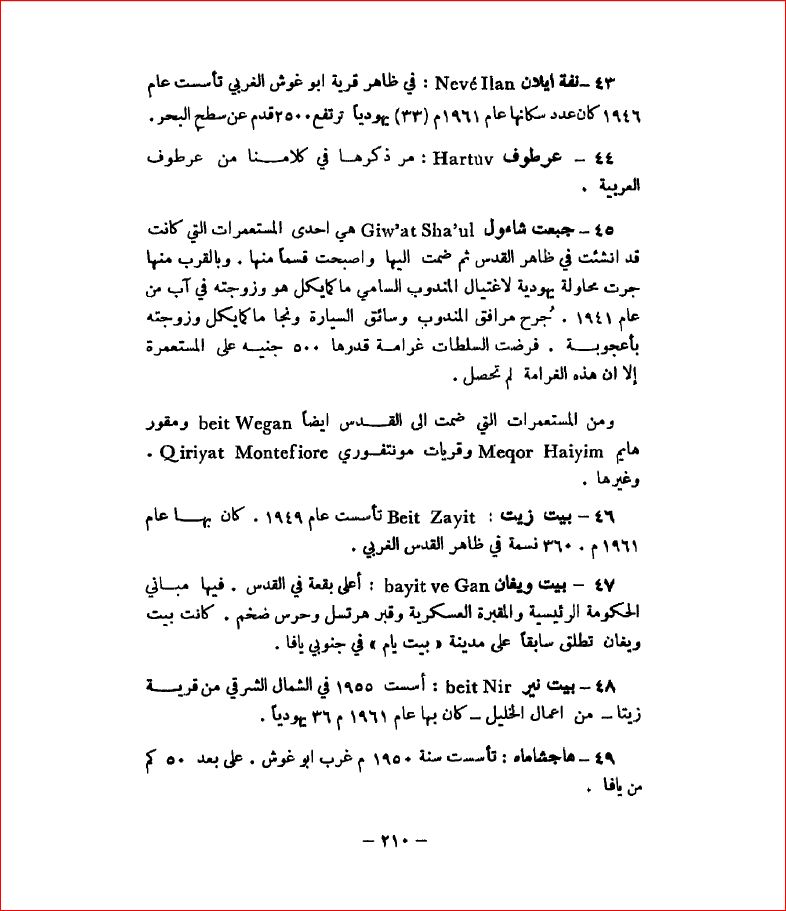 ٤٣ – نفة ايلان Nevé Ilan : في ظاهر قرية ابو غوش الغربي تأسست عام
١٩٤٦ كان عدد سكانها عام ١٩٦١م (٣٣) يهودياً ترتفع ٢٥٠٠ قدم عن سطح البحر .
٤٤ – عرطوف Hartuv : مر ذكرها في كلامنا من عرطوف
العربية .
٤٥ – جبعت شاءول Giw'at Sha'ul هي احدى المستعمرات التي كانت
قد انشئت في ظاهر القدس ثم ضمت اليها واصبحت قسماً منها . وبالقرب منها
جرت محاولة يهودية لاغتيال المندوب السامي ماكايكل هو وزوجته في آب من
عام ١٩٤١ . جُرح مرافق المندوب وسائق السيارة ونجا ماكايكل وزوجته
بأعجوبة . فرضت السلطات غرامة قدرها ٥٠٠ جنيه على المستعمرة
إلا ان هذه الغرامة لم تحصل .
ومن المستعمرات التي ضمت الى القدس ايضاً beit Wegan ومقور
هايم Meqor Haiyim وقريات مونتفوري Qiriyat Montefiore .
وغيرها .
٤٦ – بيت زيت : Beit Zayit تأسست عام ١٩٤٩ . كان بها عام
١٩٦١م . ٣٦٠ نسمة في ظاهر القدس الغربي .
٤٧ – بيت ويفان bayit ve Gan : أعلى بقعة في القدس . فيها مباني
الحكومة الرئيسية والمقبرة العسكرية وقبر هرتسل وحرس ضخم . كانت بيت
ويفان تطلق سابقاً على مدينة « بيت يام » في جنوبي يافا .
٤٨ – بيت نير beit Nir : أسست ١٩٥٥ في الشمال الشرقي من قرية
زيتا – من اعمال الخليل – كان بها عام ١٩٦١ م ٣٦ يهودياً .
٤٩ – هاجشاماه : تأسست سنة ١٩٥٠ م غرب ابو غوش . على بعد ٥٠ كم
من يافا .
– ٢١٠ –